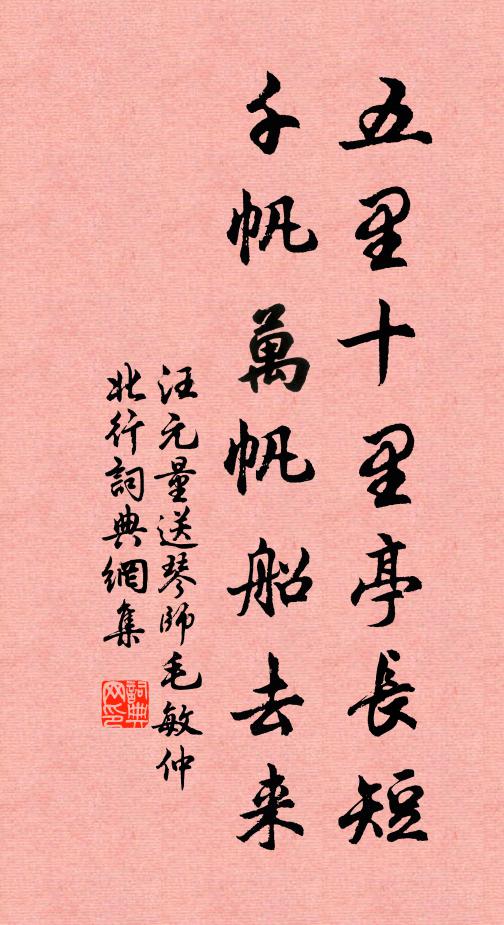 五里十里亭長短
千帆萬帆船去来
汪元量送琴師毛敏仲
北行詞典網集
詞典
网印